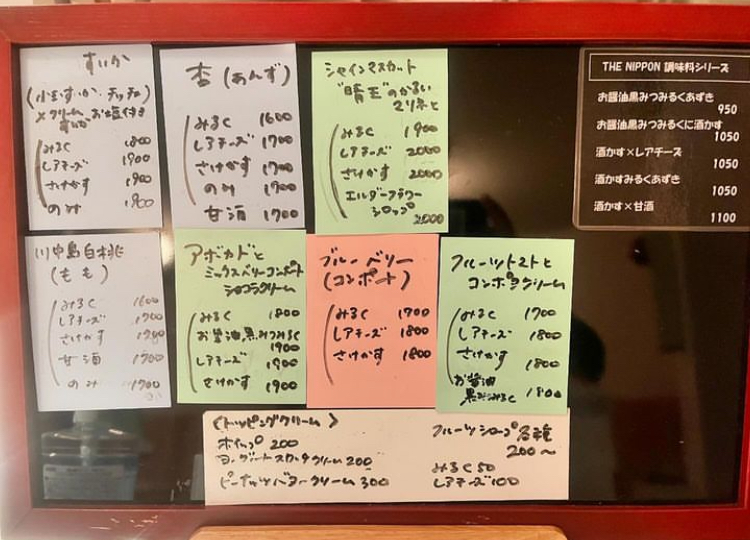 すいか
(小玉すいか・チッチェ)
×クリーム お塩付き
すいか
みるく 1800
レアチーズ 1900
さけかす 1900
のみ 1900
杏(あんず)
みるく 1600
レアチーズ 1700
さけかす 1700
のみ 1700
甘酒 1700
シャインマスカット
"晴王"のかるい
みるく 1900
レアチーズ 2000
さけかす 2000
エルダーフラワー
シロップ 2000
THE NIPPON 調味料シリーズ
お醤油黒みつみるくあずき
950
お醤油黒みつみるくに酒かす
1050
酒かす×レアチーズ
1050
酒かすみるくあずき
1050
酒かす×甘酒
1100
川中島白桃
(もも)
みるく 1600
レアチーズ 1700
さけかす 1700
甘酒 1700
のみ 1700
アボカドと
ミックスベリーコンポート
ショコラクリーム
みるく 1800
お醤油黒みつみるく
1900
レアチーズ 1900
さけかす 1900
ブルーベリー
(コンポート)
みるく 1700
レアチーズ 1800
さけかす 1800
フルーツトマトと
コンポクリーム
みるく 1700
レアチーズ 1800
さけかす 1800
お醤油
黒みつみるく 1800
<トッピングクリーム>
ホイップ 200
ヨーグルトカスタードクリーム 200
ピーナッツバタークリーム 300
フルーツシロップ各種
200〜
みるく 50
レアチーズ 100